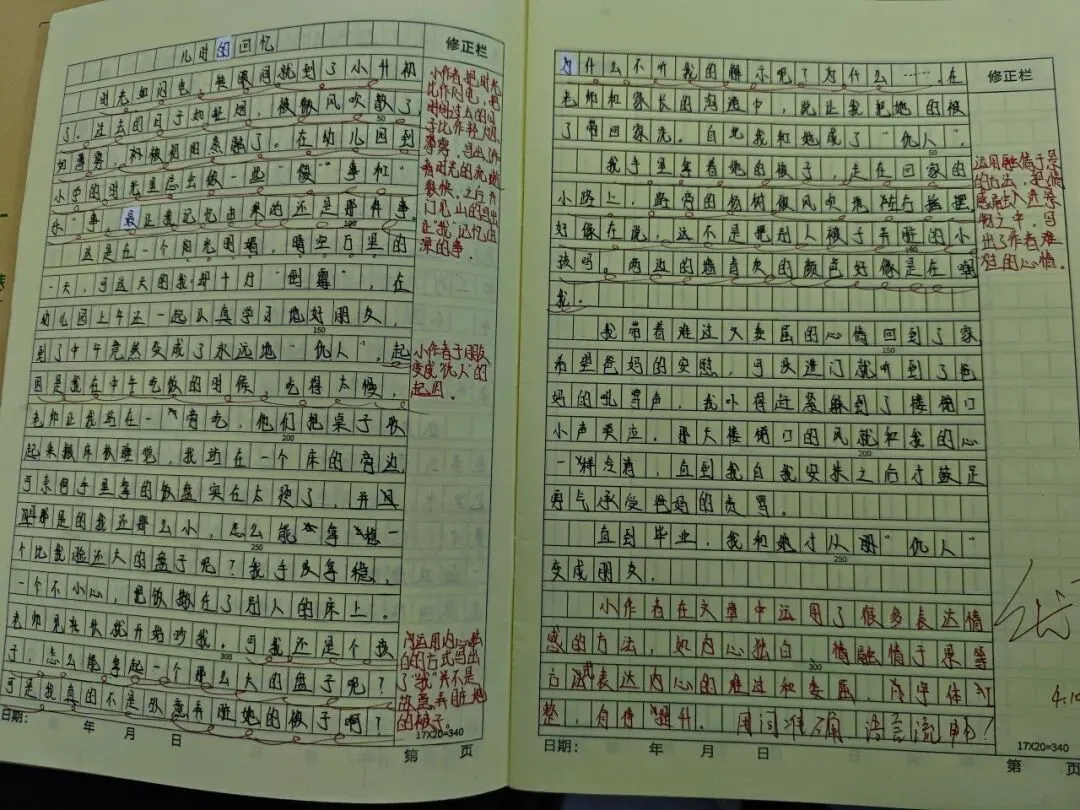 儿时的回忆
修正栏
时光如闪电，转眼间就到了小升初
了。过去的日子如轻烟，被微风吹散了
50
如薄雾，初被初阳蒸融了。在幼儿园到
小学的时光里总会做一些“傻”事和“
乐”事，最让我记忆由来的还是那件事。
100
这是在一个阳光明媚，晴空万里的
一天，可这天的我却十分“倒霉”，在
幼儿园上午还一起认真学习地好朋友，
150
到了中午竟然变成了永远地“仇人”，起
因是我在中午吃饭的时候，吃得太慢，
老师让我站在一旁吃，他们把桌子收
200
起来搬床做睡觉，我站在一个床的旁边，
可奈何手里拿的饭盘实在太烫了，并且
那是的我还那么小，怎么能拿稳一
250
个比我脸还大的盘子呢？我手没拿稳，
一个不小心，把饭撒在了别人的床上。
老师见状就开始吵我。可我还是个孩
300
子，怎么能拿起一个那么大的盘子呢？
可是我真的不是故意弄脏她的被子啊？
小作者把时光
比作闪电，把
时间过去的日
子比作轻烟，
薄雾，写出了作
者时光的流逝
很快。之后开
门见山的写出
让“我”记忆由
深的事。
小作者于朋友
变成“仇人”的
起因。
运用内心独
白的方式写出
了“我”并不是
故意弄脏她
的被子。
日期： 年 月 日
17X20=340
第 页
修正栏
为什么不听我的解示呢？为什么……。在
老师和家长的沟通中，说让我把她的被
子带回家洗。自此我和她成了“仇人”。
50
我手里拿着她的被子，走在回家的
小路上，路旁的杨树被风吹地左右摇摆，
好像在说，这不是把别人被子弄脏的小
100
孩吗。两边的墙青灰的颜色好像是在嘲
我。
我带着难过又委屈的心情回到了家
150
希望爸妈的安慰，可没进门就听到了爸
妈的吼骂声，我吓得赶紧躲到了楼梯口
小声哭泣。那天楼梯口的风就和我的心
200
一样冷清，直到我自我安抚之后才鼓足
勇气承受爸妈的责骂。
直到毕业，我和她才从朋“仇人”
250
变成朋友。
运用融情于景
的方法，把情
感融入井景
物之中，写
出了作者难
过的心情。
小作者在文章中运用了很多表达情
感的方法，如内心独白、情融情于景等
300
方式表达内心的难过和委屈，字体工
整，有待提升。用词准确，语言流畅！
4.10
日期： 年 月 日
17X20=340
第 页